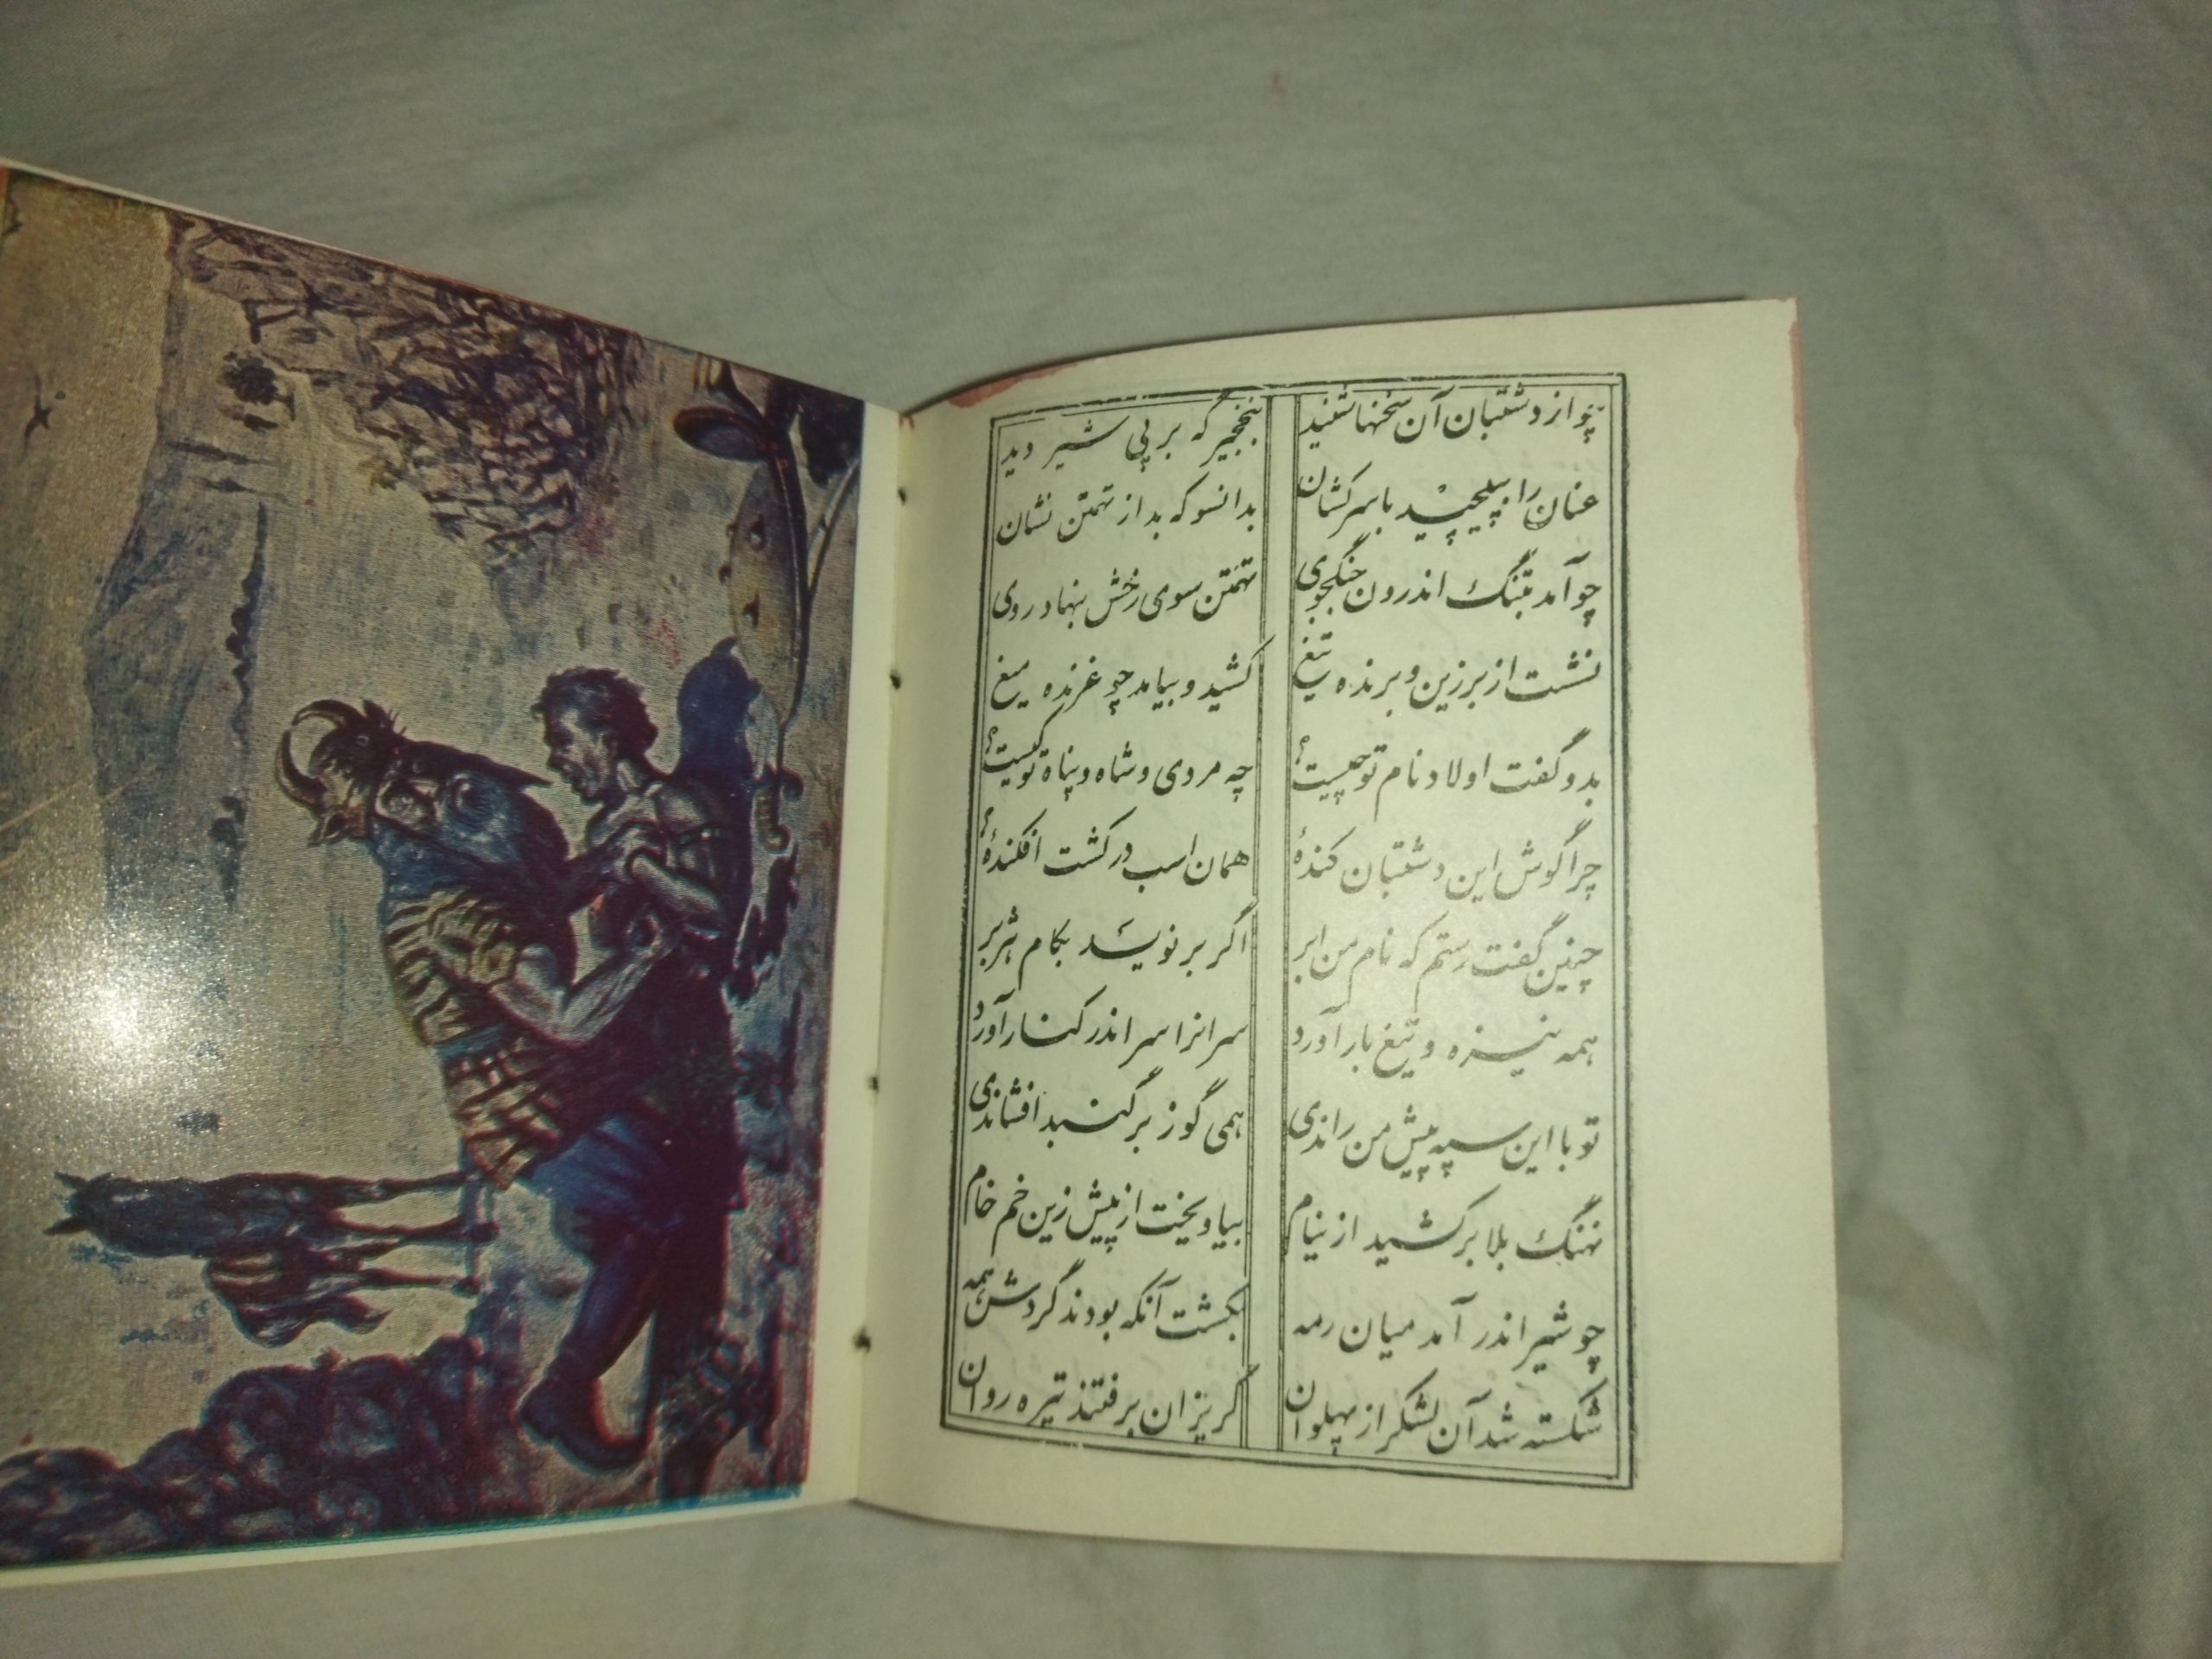 چو از دشتبان آن سخنها شنید بنخجیر گه بر پی شیر دید
عنان را بپیچید با سرکشان بدانسو که بد از تهمتن نشان
چو آمد بتنگ اندرون جنگجوی تهمتن سوی رخش بنهاد روی
نشت از بر زین و برنده تیغ کشید و بیامد چو غرنده میغ
بدو گفت اولاد نام تو چیست؟ چه مردی و شاه و پناه تو کیست؟
چرا گوش این دشتبان کندهٔ همان اسب در کشت افکندهٔ؟
چنین گفت رستم که نام من ابر اگر بر نویسد بکام هژبر
همه نیزه و تیغ بار آورد سرانرا سر اندر کنار آورد
تو با این سپه پیش من راندی همی گوز بر گنبد افشاندی
نهنگ بلا برکشید از نیام بیاویخت از پیش زین خم خام
چو شیر اندر آمد میان رمه بکشت آنکه بودند گردش همه
شکسته شد آن لشکر از پهلوان گریزان برفتند تیره روان